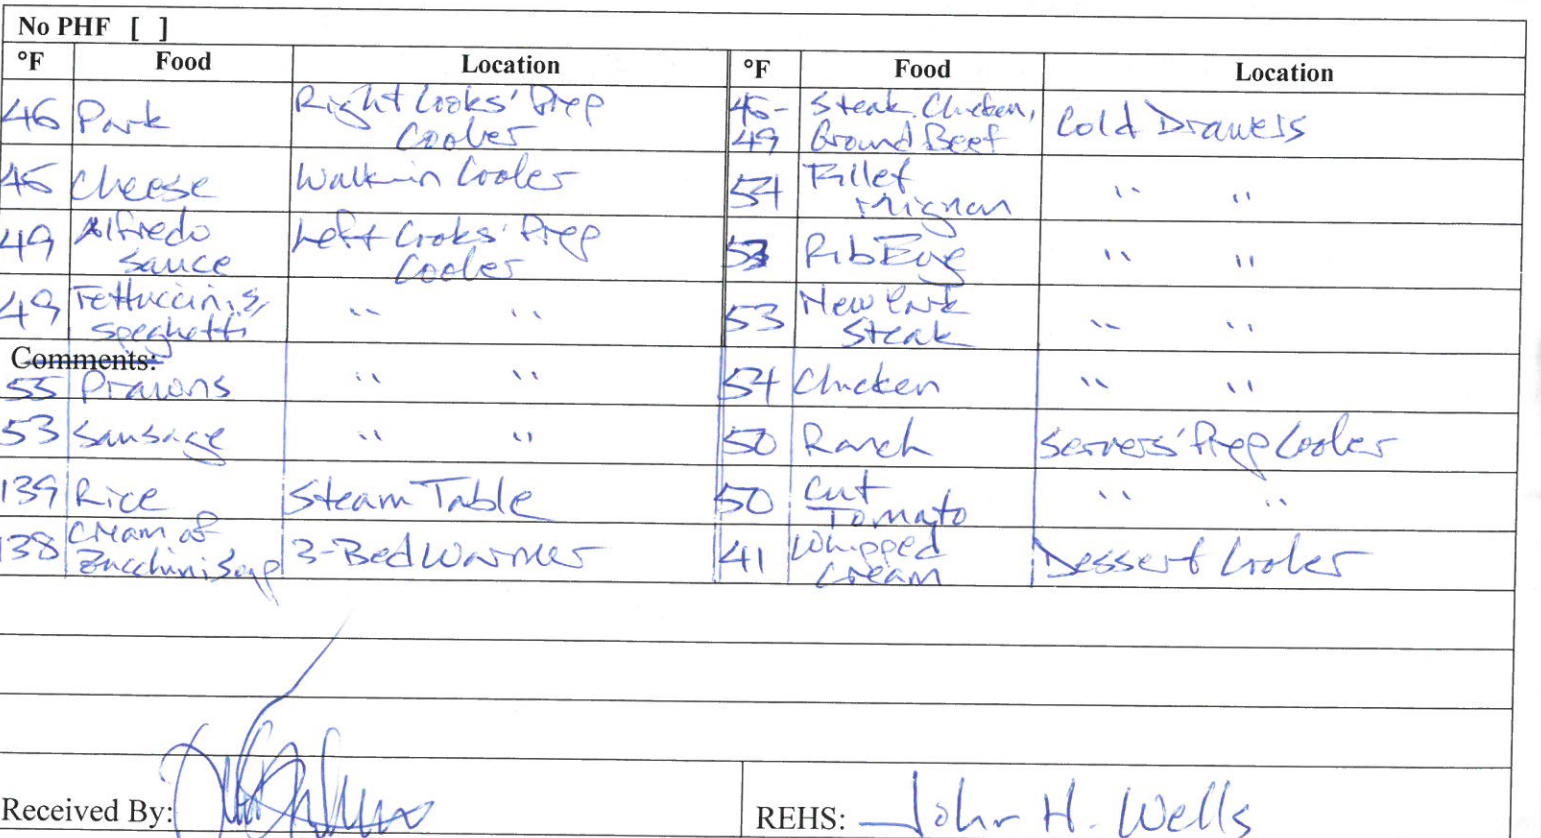 No PHF [ ]
°F Food Location °F Food Location
46 Pork Right Cooks' Prep Cooler 45-49 Steak, Chicken, Ground Beef Cold Drawers
45 Cheese Walk-in Cooler 54 Fillet Mignon " "
49 Alfredo Sauce Left Cooks' Prep Cooler 53 Rib Eye " "
49 Fettuccini, Speghetti " " 53 New York Steak " "
Comments:
55 Prawns " " 54 Chicken " "
53 Sausage " " 50 Ranch Servers' Prep Cooler
139 Rice Steam Table 50 Cut Tomato " "
138 Cream of Zucchini Soup 3-Bed Warmer 41 Whipped Cream Dessert Cooler
Received By: REHS: John H. Wells